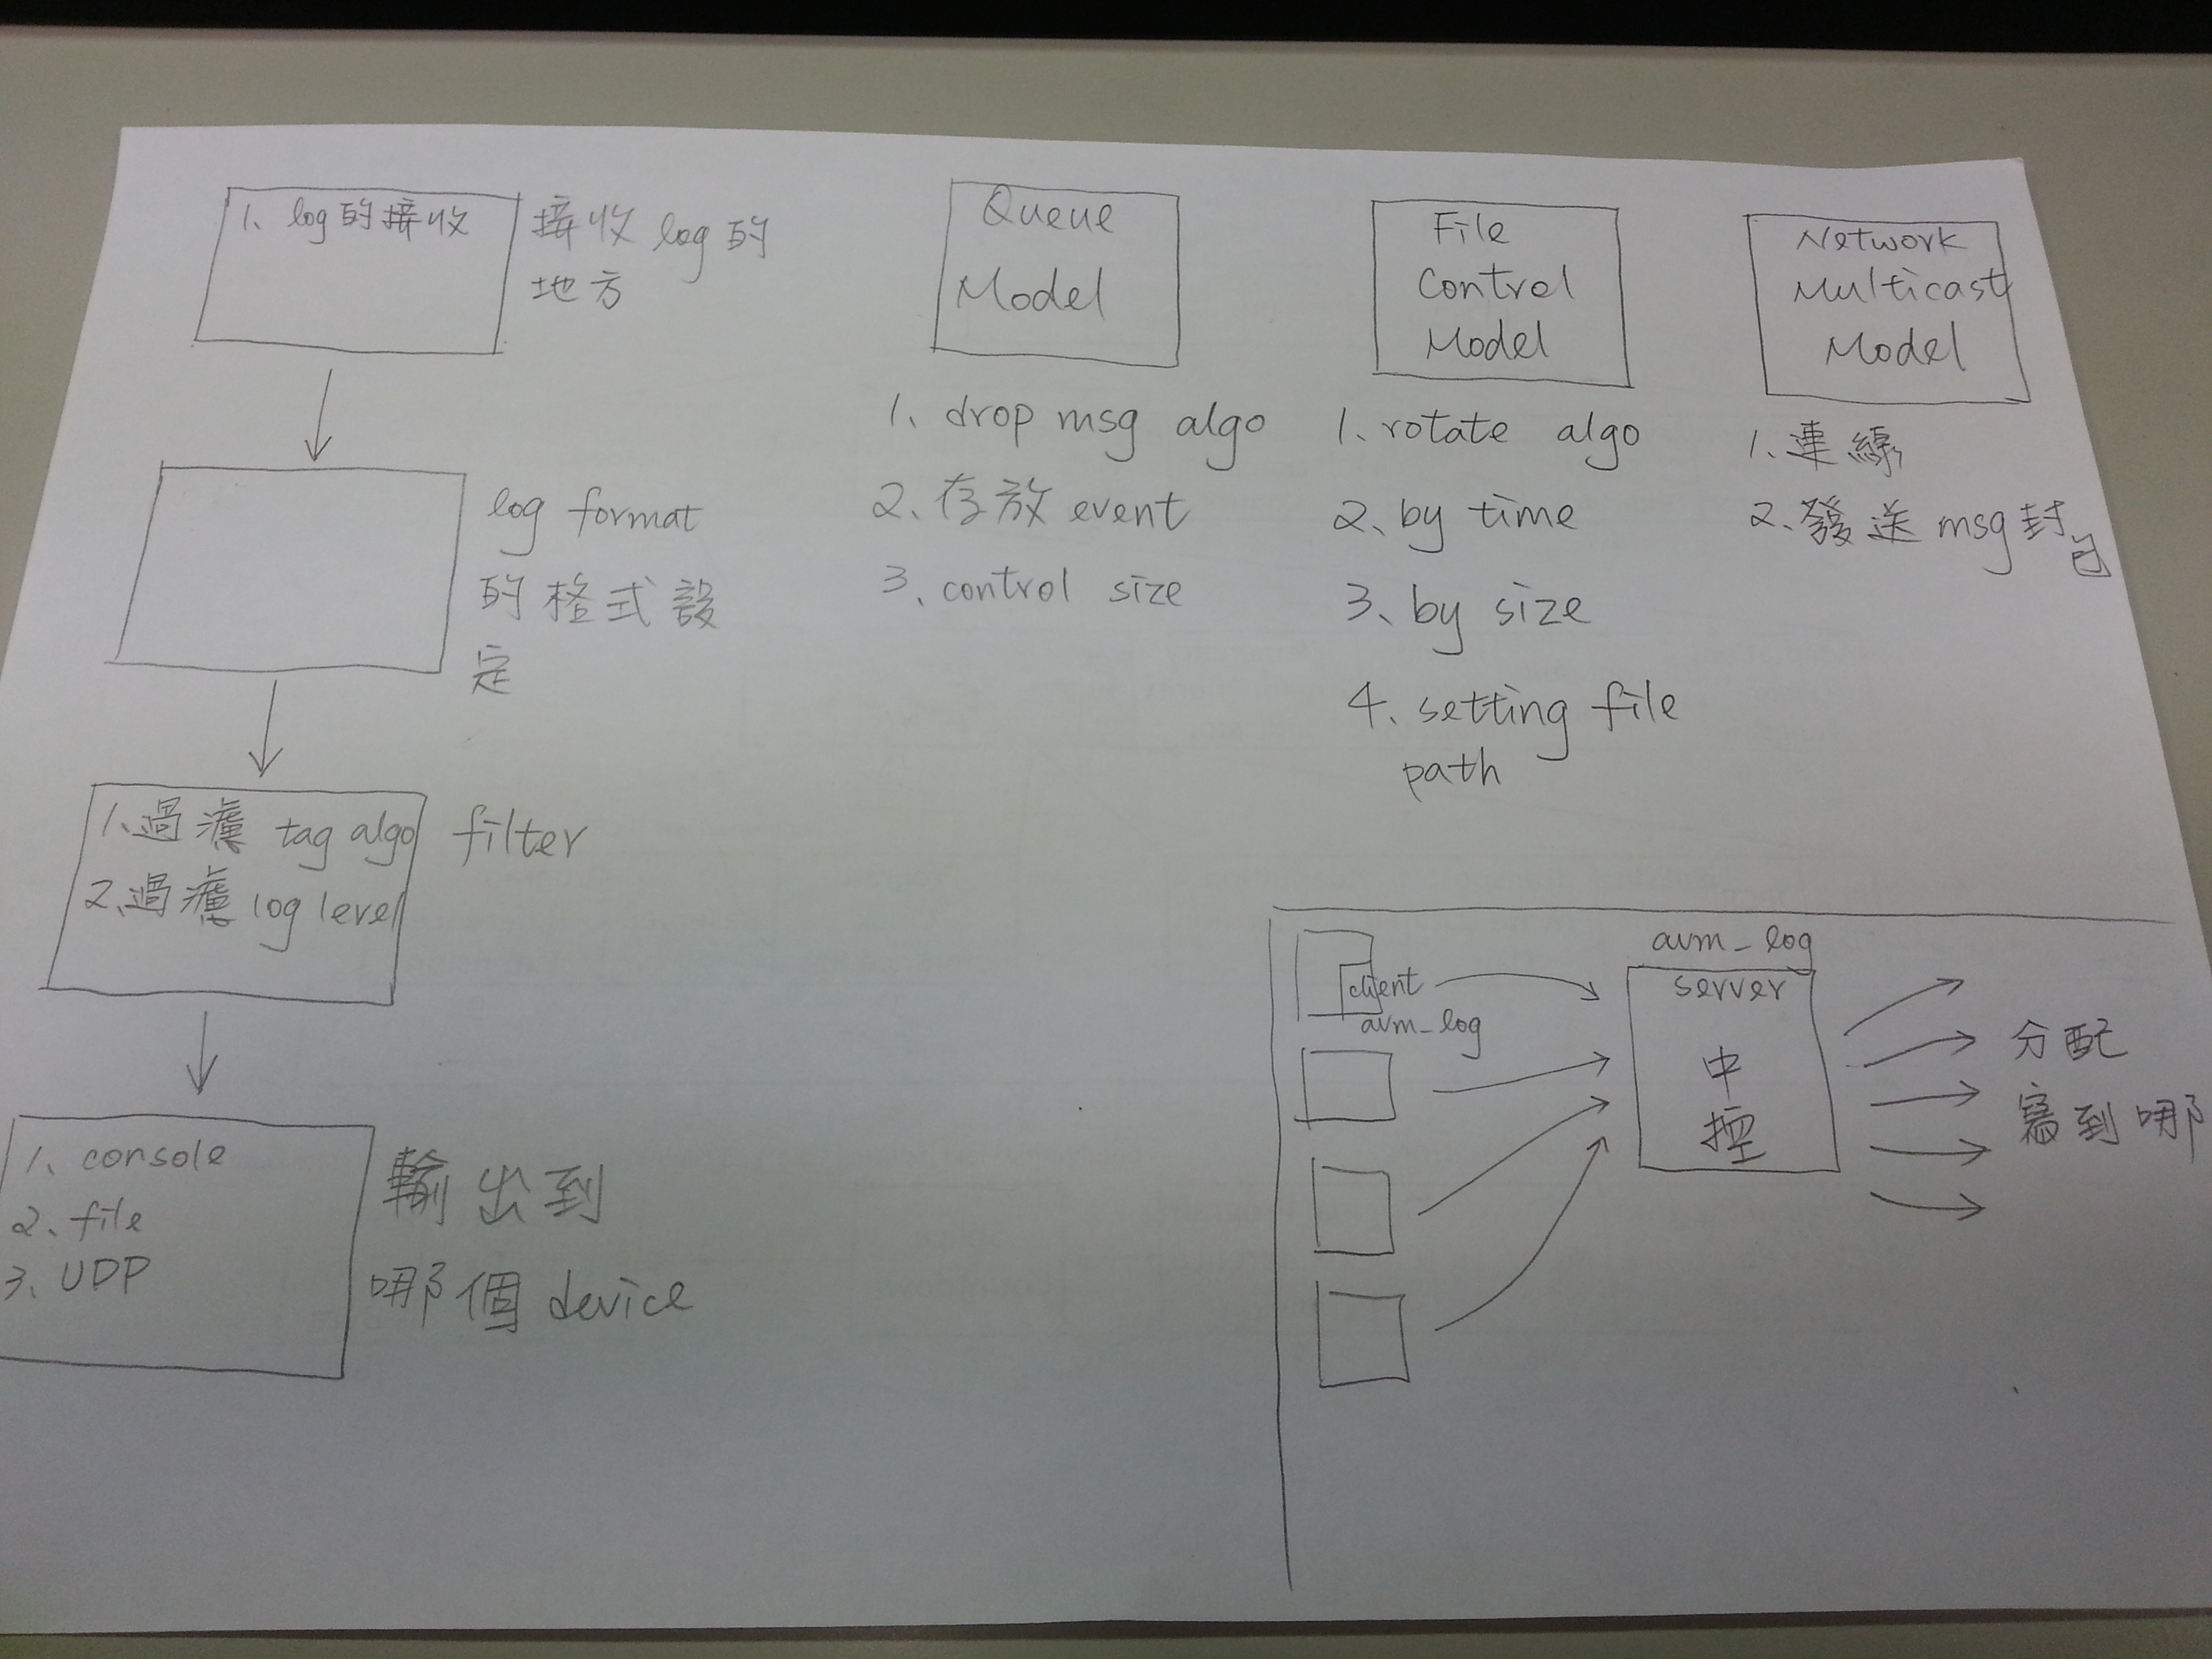 1、log的接收
接收 log的
地方
log format
的格式設
定
1、過濾 tag algo
2、過濾 log level
filter
1、console
2、file
3、UDP
輸出到
哪個 device
Queue
Model
1、drop msg algo
2、存放 event
3、control size
File
Control
Model
1、rotate algo
2、by time
3、by size
4、setting file
path
Network
Multicast
Model
1、連線
2、發送 msg封包
client
avm_log
avm_log
server
中
控
分配
寫到哪